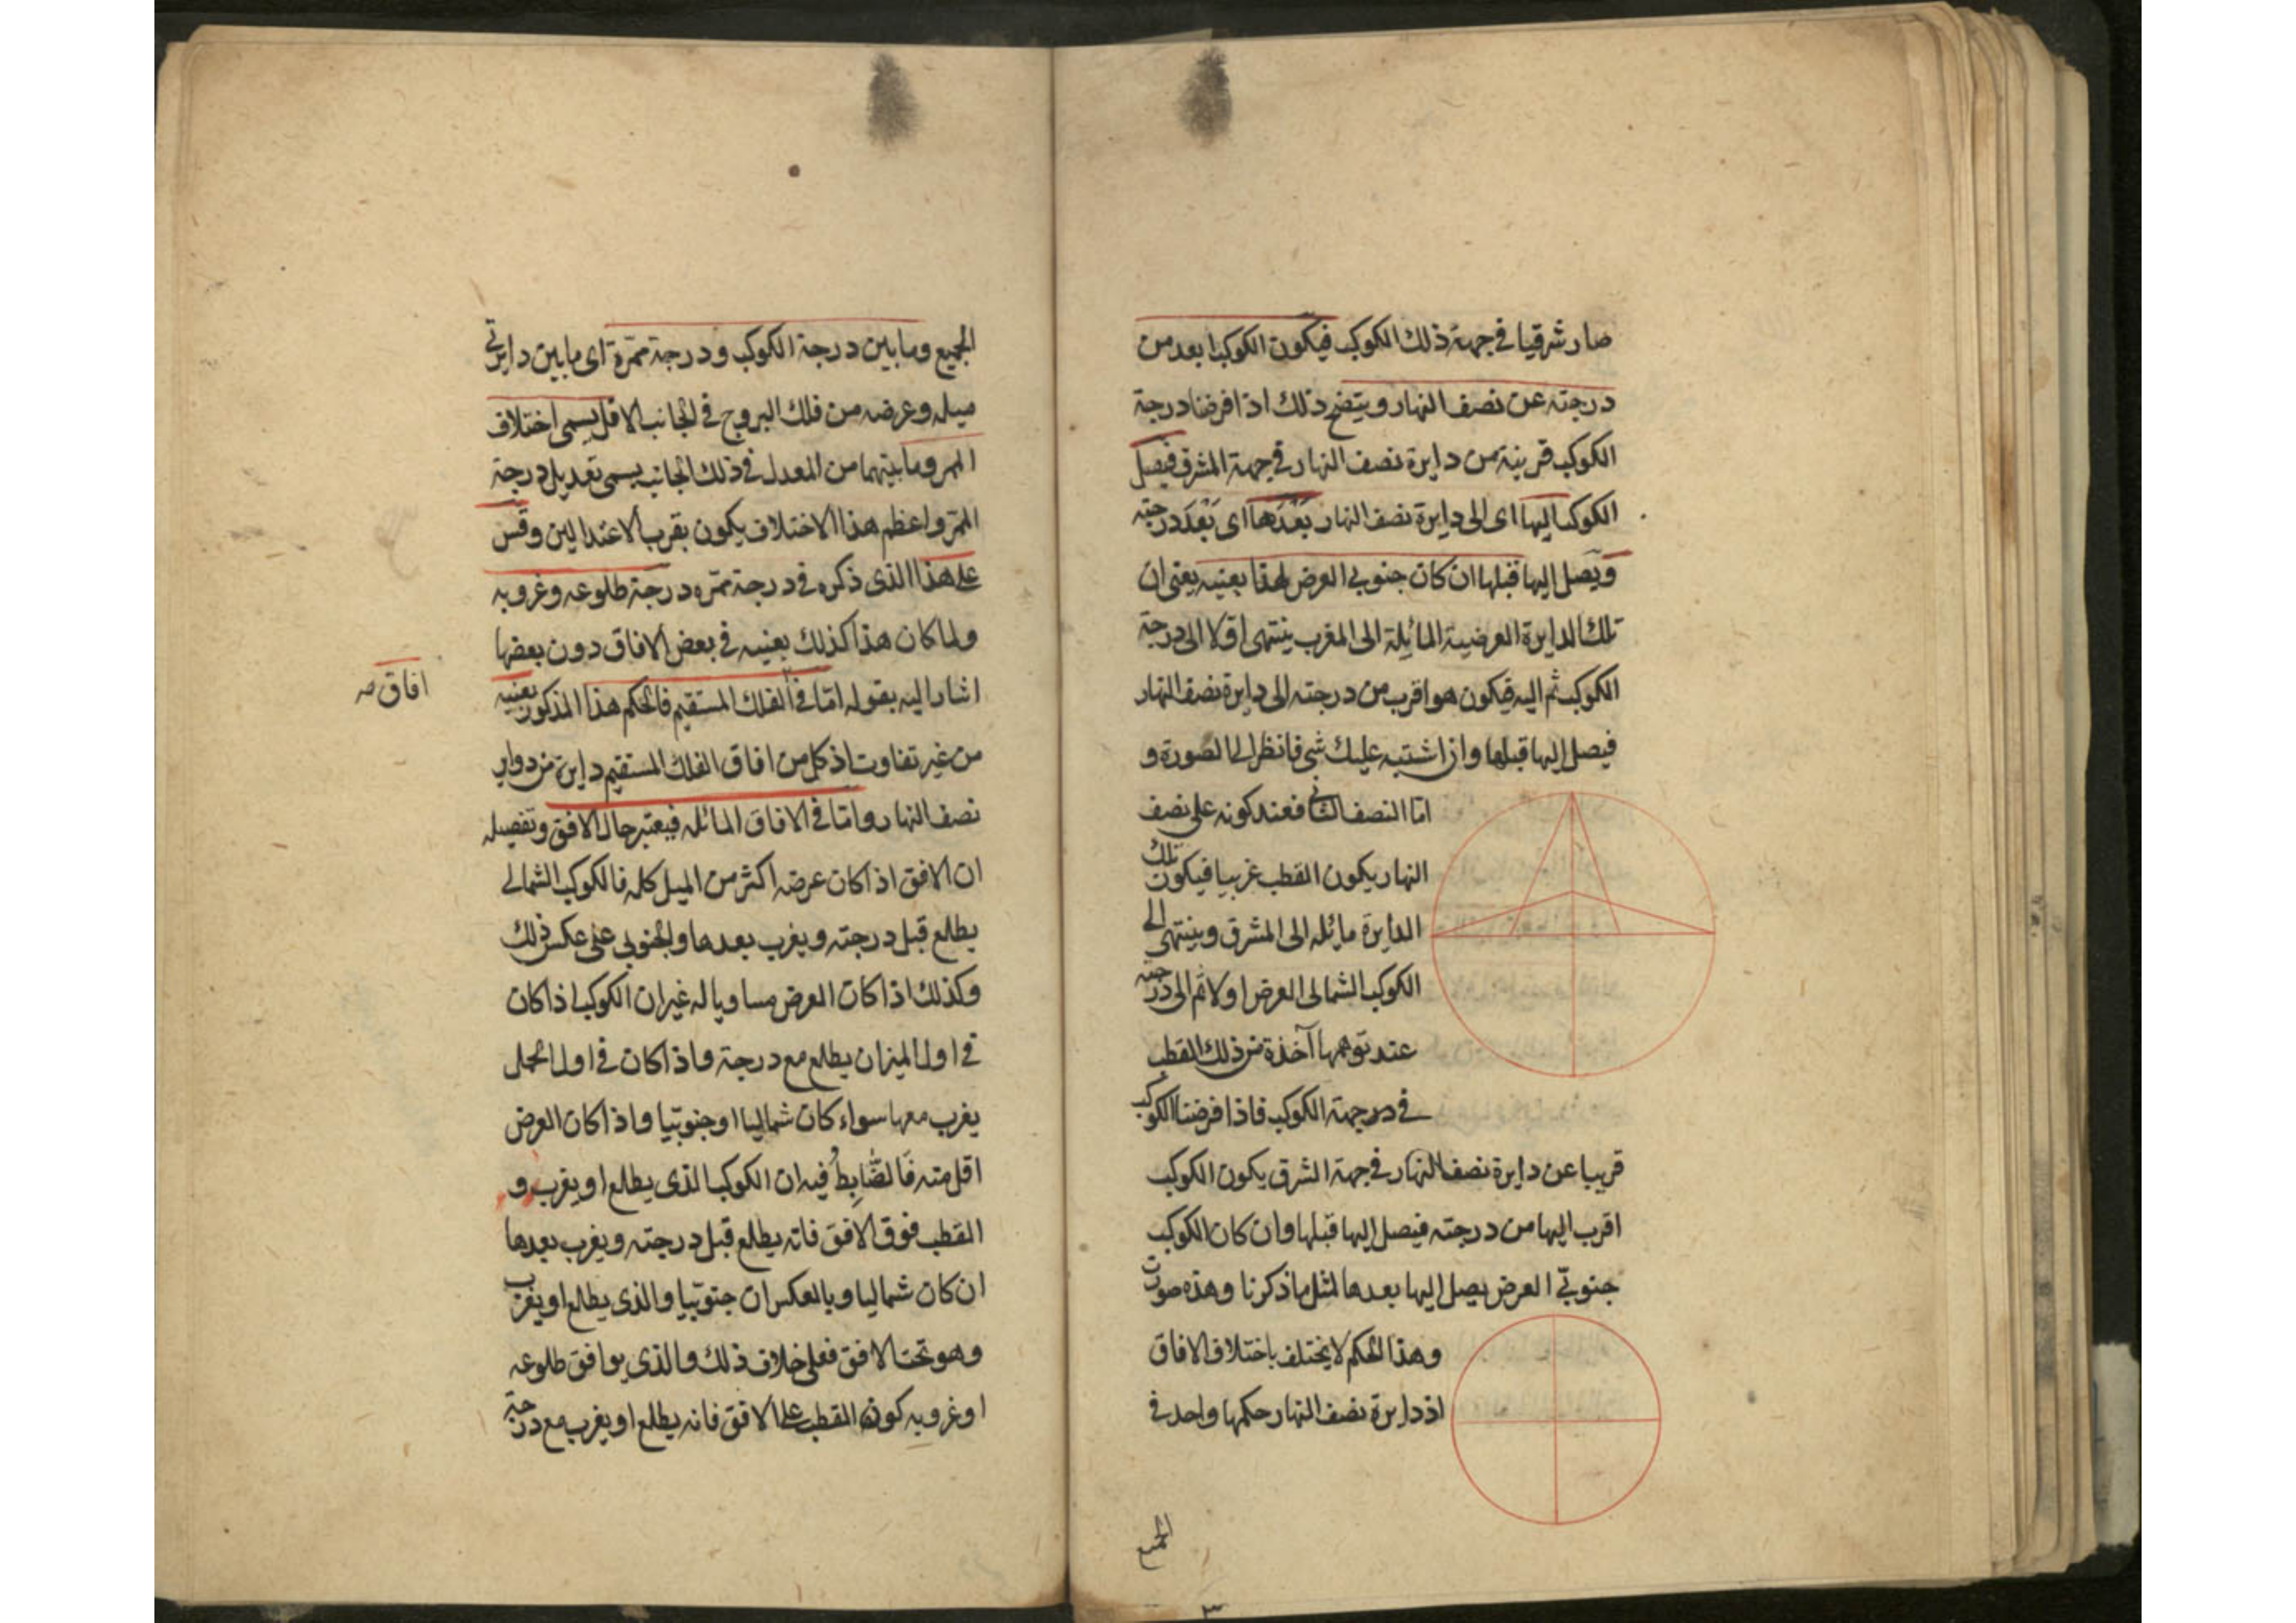 صار شرقيا في جهة ذلك الكوكب فيكون الكوكب ابعد من
درجته عن نصف النهار ويتضح ذلك اذا فرضنا درجة
الكوكب قريبة من دايرة نصف النهار في جهة المشرق فيصل
الكوكب اليها اى الى دايرة نصف النهار بَعْدَها اى بَعْدَ درجته
ويصل اليها قبلها ان كان جنوبي العرض لهذا بعينه يعنى ان
تلك الدايرة العرضية المائلة الى المغرب ينتهى اولا الى درجة
الكوكب ثم اليه فيكون هو اقرب من درجته الى دايرة نصف النهار
فيصل اليها قبلها وان اشتبه عليك شى فانظر الى الصورة و
امّا النصف الثاني فعند كونه على نصف
النهار يكون القطب غربيا فيكون تلك
الدايرة مائله الى المشرق وينتهى الى
الكوكب الشمالى العرض اولا ثم الى درجته
عند توهمها آخذة من ذلك القطب
في درجهة الكوكب فاذا فرضنا الكوكب
قريبا عن دايرة نصف النهار في جهة الشرق يكون الكوكب
اقرب اليها من درجته فيصل اليها قبلها وان كان الكوكب
جنوبيّ العرض يصل اليها بعدها لمثل ما ذكرنا وهذه صورت
وهذا الحكم لا يختلف باختلاف الافاق
اذ دايرة نصف النهار حكمها واحد في
الجميع
الجميع وما بين درجة الكوكب ودرجة ممرّه اى ما بين دايرتي
ميله وعرضه من فلك البروج في الجانب الاقل يسمى اختلاف
الممر وما بينهما من المعدل في ذلك الجانب يسمى تعديل درجة
الممرّ واعظم هذا الاختلاف يكون بقرب الاعتدالين وقس
على هذا الذى ذكره في درجة ممرّه درجة طلوعه وغروبه
ولما كان هذا كذلك بعينه في بعض الافاق دون بعضها
اشار اليه بقوله امّا في الفلك المستقيم فالحكم هذا المذكور بعينه
افاق صه
من غير تفاوت اذ كل من افاق الفلك المستقيم دايرة من دواير
نصف النهار وامّا في الافاق المائله فيعتبر حال الافق وتفصيله
ان الافق اذا كان عرضه اكثر من الميل كله فالكوكب الشمالى
يطلع قبل درجته ويغرب بعدها والجنوبي على عكس ذلك
وكذلك اذا كان العرض مساويا له غير ان الكوكب اذا كان
في اول الميزان يطلع مع درجة واذا كان في اول الحمل
يغرب معها سواء كان شماليا او جنوبيّا واذا كان العرض
اقل منه فالضّابط فيه ان الكوكب الذى يطلع او يغرب و
القطب فوق الافق فانه يطلع قبل درجته ويغرب بعدها
ان كان شماليا وبالعكس ان جنوبيّا والذى يطلع او يغرب
وهو تحت الافق فعلى خلاف ذلك والذى يوافق طلوعه
او غروبه كون القطب على الافق فانه يطلع او يغرب مع درجته